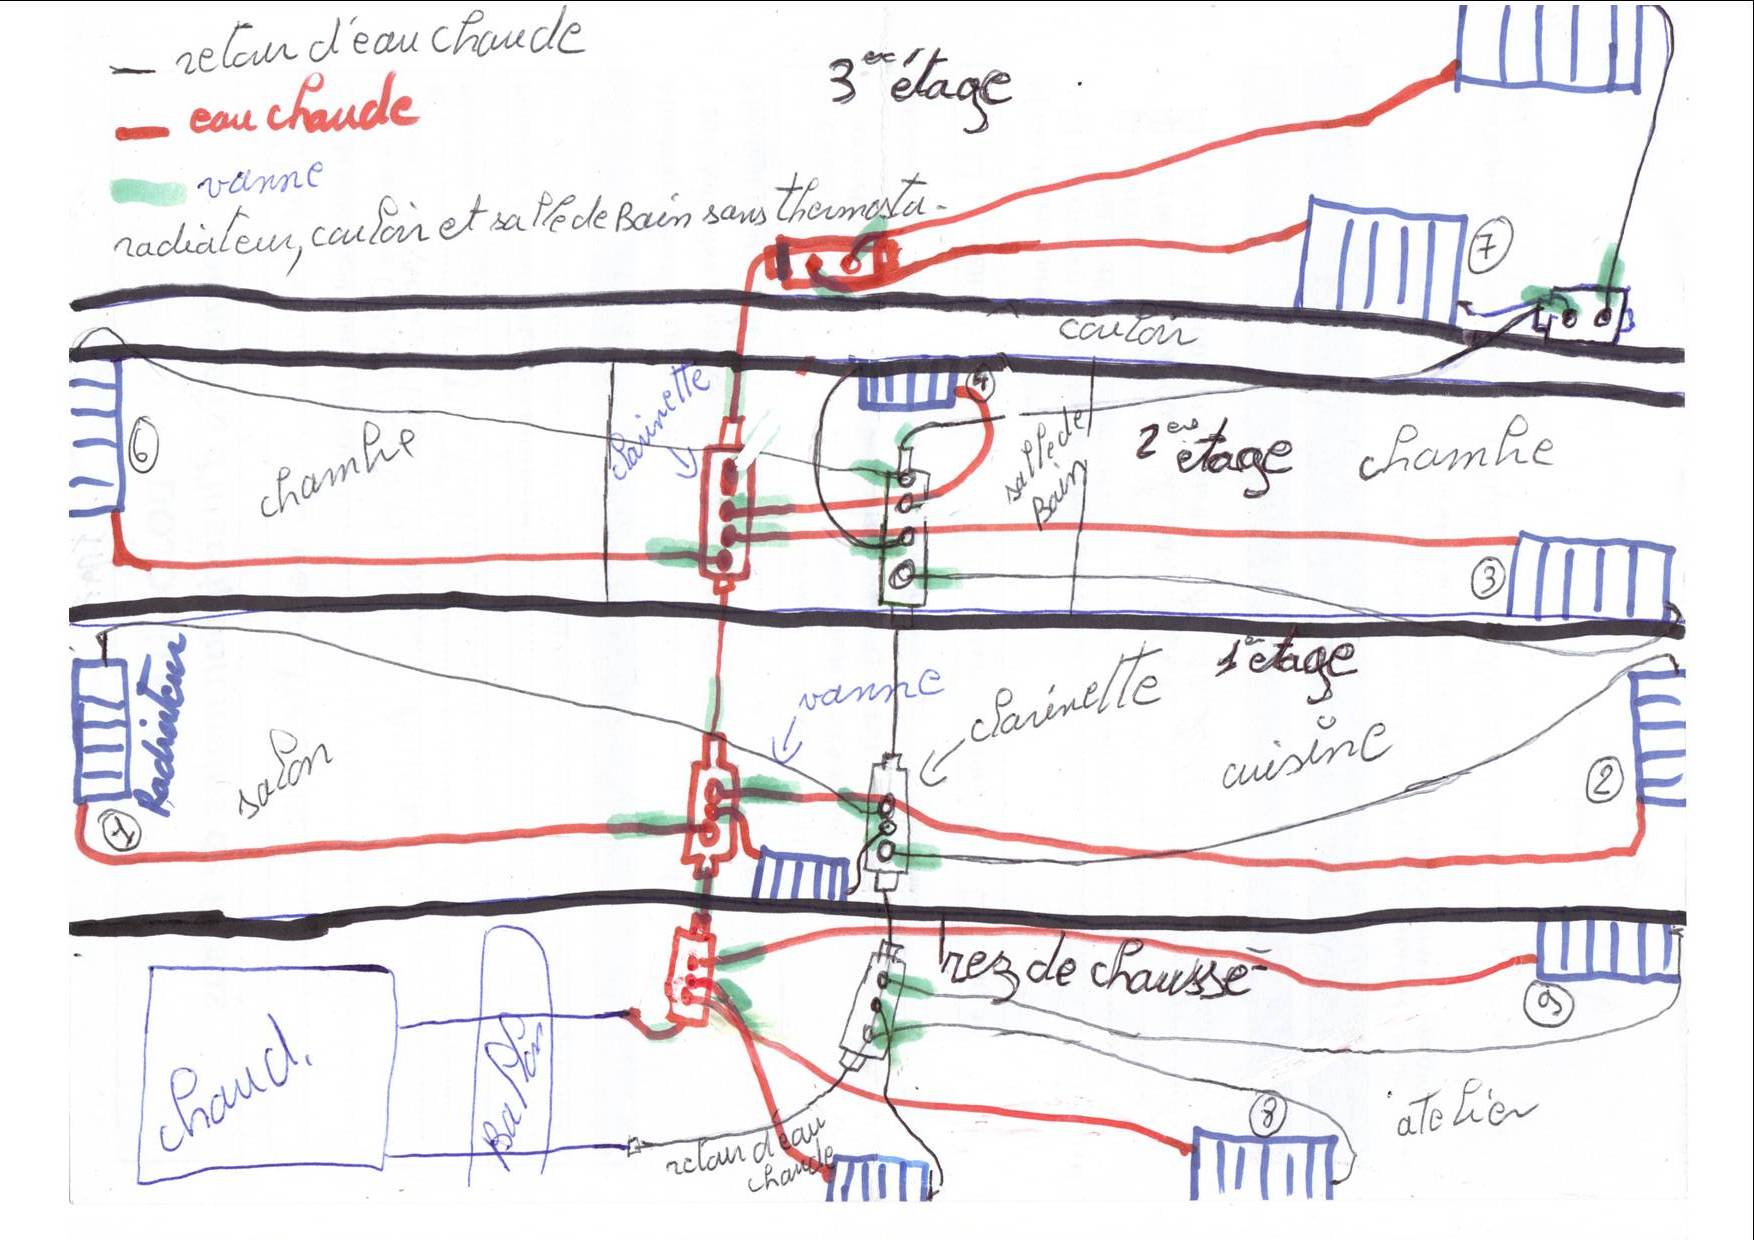 retour d'eau chaude
eau chaude
vanne
radiateur, couloir et salle de Bain sans thermosta.
3ere étage
7
couloir
6
chambre
clarinette
4
salle de
Bain
2ere étage
chambre
3
1er étage
Radiateur
1
salon
vanne
clarinette
cuisine
2
rez de chaussé
9
chaud.
Ballon
retour d'eau
chaude
8
atelier